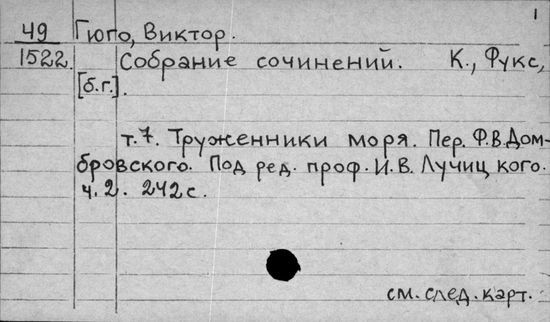 1
49 Гюго, Виктор.
1522. Собрание сочинений. К., Фукс,
[б.г.].
т.7. Труженники моря. Пер. Ф.В.Дом-
бровского. Под ред. проф. И.В. Лучиц кого.
ч.2. 242 с.
см. след. карт.